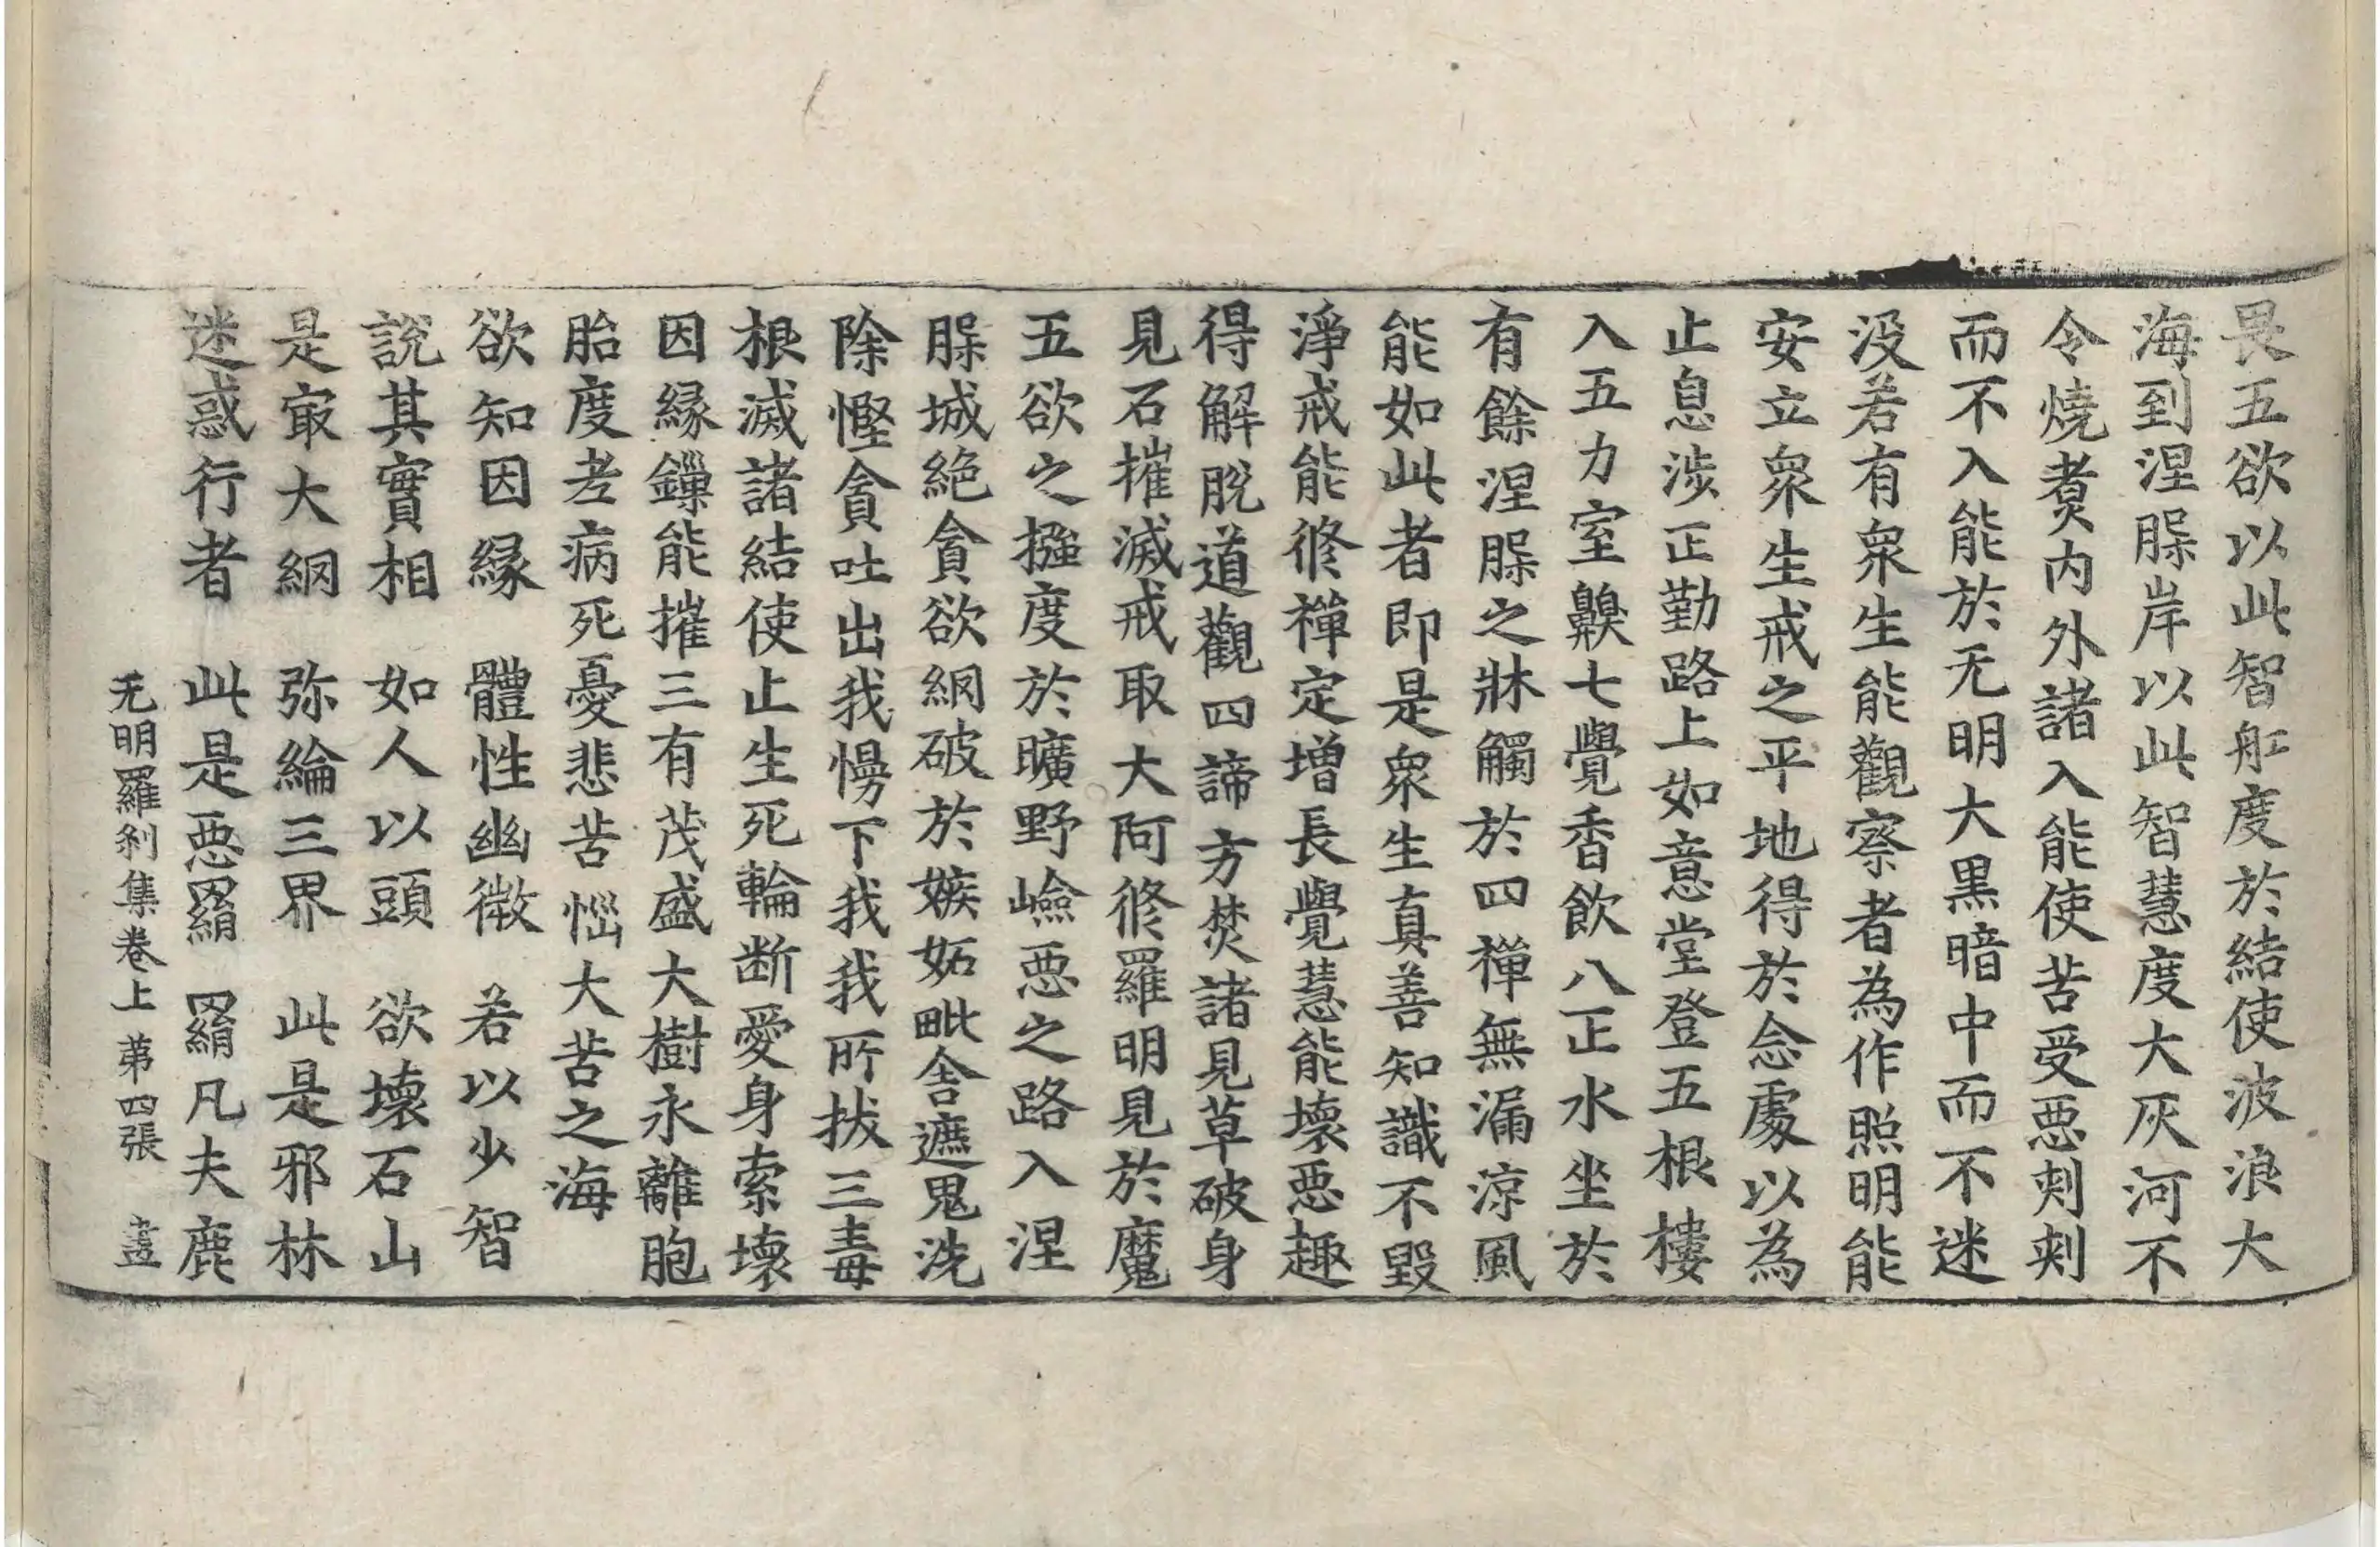 畏五欲以此智舡度於結使波浪大
海到涅腂岸以此智慧度大灰河不
令燒煑内外諸入能使苦受惡刾刾
而不入能於无明大黒暗中而不迷
没若有衆生能觀察者為作照明能
安立衆生戒之平地得於念處以為
止息涉正勤路上如意堂登五根樓
入五力室齅七覺香飲八正水坐於
有餘涅腂之牀觸於四禪無漏涼風
能如此者即是衆生真善知識不毀
淨戒能修禪定增長覺慧能壞惡趣
得解脫道觀四諦方焚諸見草破身
見石摧滅戒取大阿修羅明見於魔
五欲之摾度於曠野嶮惡之路入涅
腂城絶貪欲網破於嫉妬毗舍遮鬼洗
除慳貪吐出我慢下我我所拔三毒
根滅諸結使止生死輪断愛身索壞
因縁鏁能摧三有茂盛大樹永離胞
胎度老病死憂悲苦惱大苦之海
欲知因緣　體性幽微　若以少智
説其實相　如人以頭　欲壞石山
是㝡大網　弥綸三界　此是邪林
迷惑行者　此是惡羂　羂凡夫鹿
无明羅刹集卷上　苐四張　盡